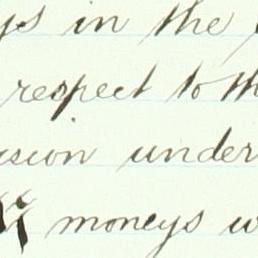 ys in the
respect to th
ision under
moneys w